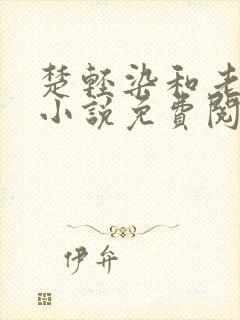 楚轻染和老
小说免费阅
伊弁